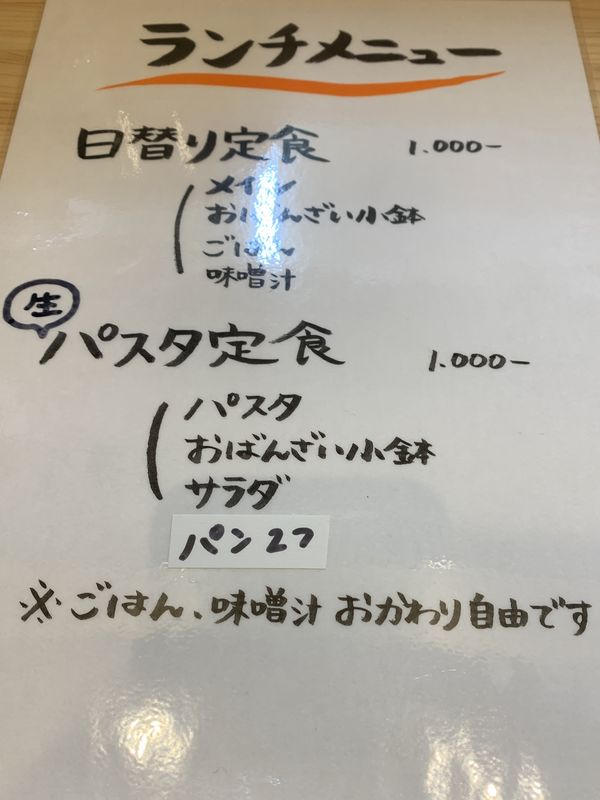 ランチメニュー
日替り定食 1.000-
メイン
おばんざい小鉢
ごはん
味噌汁
生
パスタ定食 1.000-
パスタ
おばんざい小鉢
サラダ
パン2つ
※ごはん、味噌汁 おかわり自由です